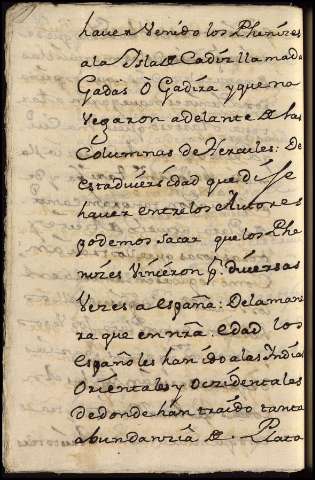 haver Venido los Phenizes
ala Isla de Cadiz llamada
Gadas Ò Gadira y que na
Vegaron adelante de las
Columnas de Hercules: De
esta diversidad que dise
haver entre los Autores
podemos sacar que los Phe
nizes Vinieron p.r diversas
Vezes a España: Dela mane
ra que en nrã. edad los
españoles han ido a las Indias
Orientales y Oczidentales
de donde han traido tanta
abundanzia de Plata